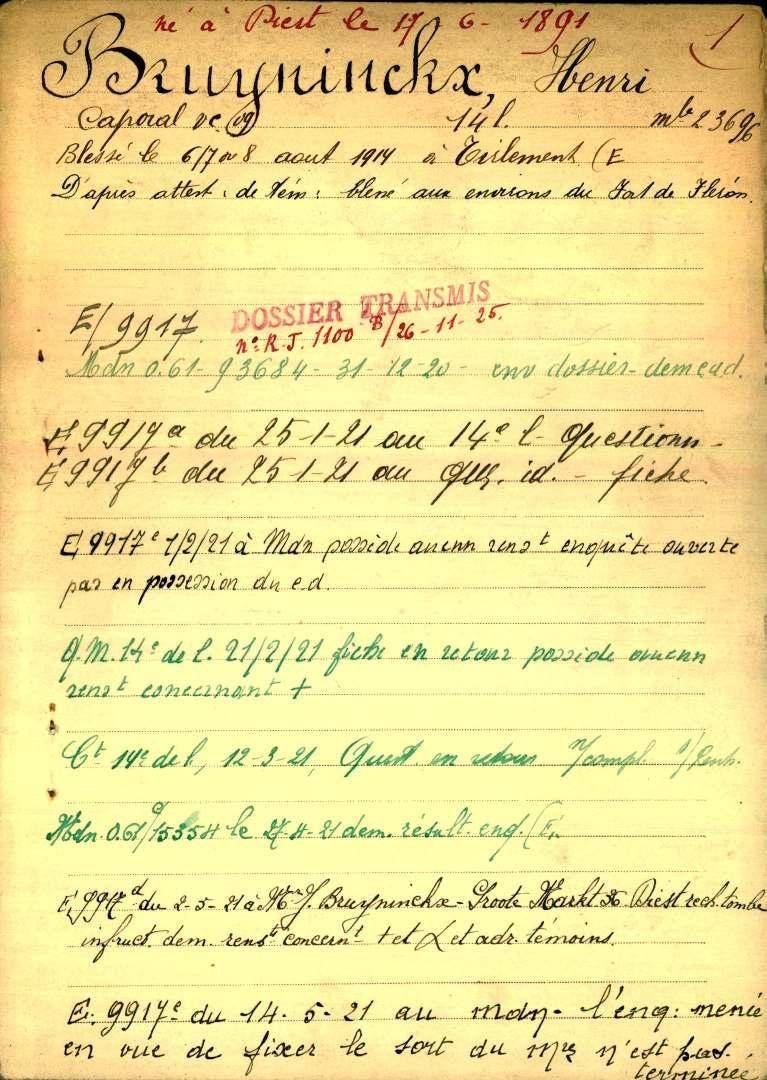 né à Diest le 17-6-1891
1
Bruyninckx, Henri
Caporal vc (09) 14 l. mle 23696
Blessé le 6/7 ou 8 aout 1914 à Tirlement (E
D'après attest: de tém: blessé aux environs du Fort de Fléron.
E/9917.
DOSSIER TRANSMIS
n° R.J. 1100 B/26-11-25.
Mdn 0.61-93684-31-12-20- env dossier-dem e.d.
E 9917a du 25-1-21 au 14e l- Questionn-
E 9917b du 25-1-21 au id. - fiche.
E 9917c 1/2/21 à Mdn possède aucun renst enquête ouverte
pas en possession du e.d.
Q.M. 14e de l. 21/2/21 fiche en retour possède aucun
renst concernant +
Ct 14e de l, 12-3-21, Quest en retour
Mdn. 0.61/15354 le 27-4-21 dem. résult. enq. (E.
E 9917d du 2-5-21 à Mr J. Bruyninckx-Groote Markt Diest rech. tombe
infruct. dem. renst concernt + et et adr. témoins.
E. 9917e du 14-5-21 au mdn- l'enq: menée
en vue de fixer le sort du n'est pas
terminée